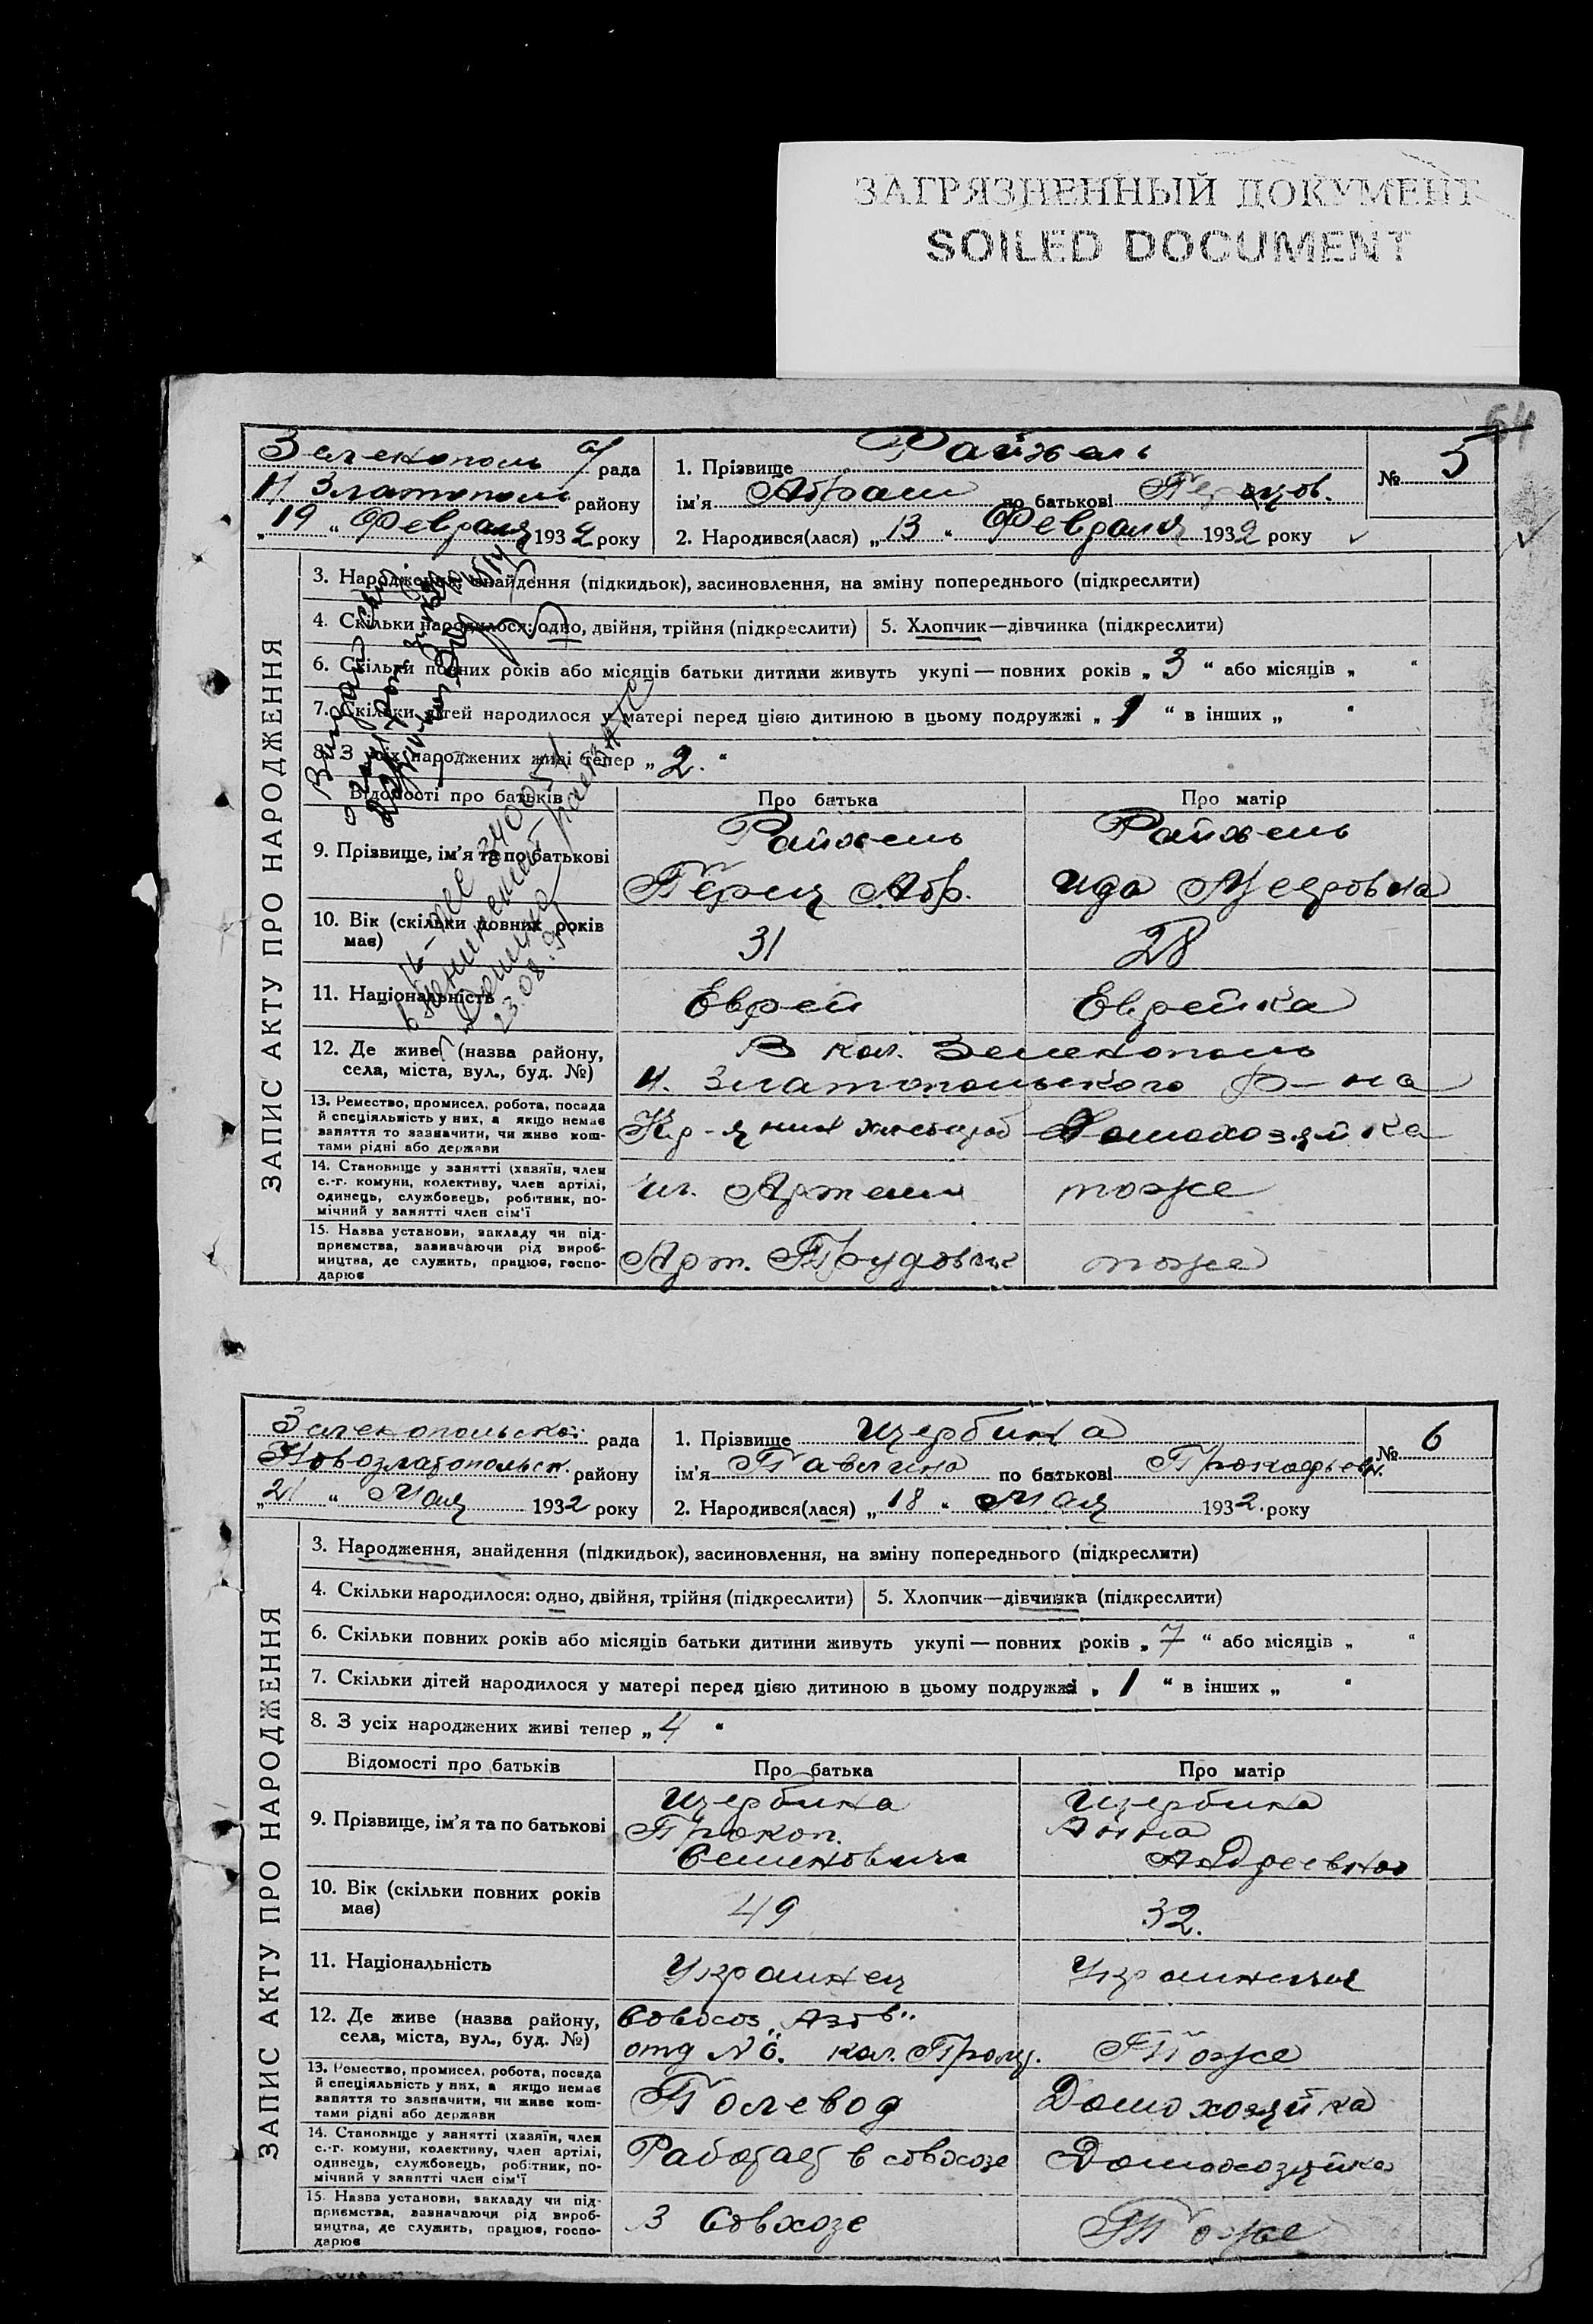 ЗАГРЯЗНЕННЫЙ ДОКУМЕНТ
SOILED DOCUMENT
64
Зеленополь с/рада
Н Златополь району
„19“ Февраля 1932 року
1. Прізвище Райхель
ім’я Абрам по батькові Герцов.
2. Народився(лася) „13“ Февраля 1932 року
№ 5
ЗАПИС АКТУ ПРО НАРОДЖЕННЯ
3. Народження, знайдення (підкидьок), засиновлення, на зміну попереднього (підкреслити)
4. Скільки народилося: одно, двійня, трійня (підкреслити) 5. Хлопчик—дівчинка (підкреслити)
6. Скільки повних років або місяців батьки дитини живуть укупі — повних років „3“ або місяців „ “
7. Скільки дітей народилося у матері перед цією дитиною в цьому подружжі „1“ в інших „ “
8. З усіх народжених живі тепер „2.“
Відомості про батьків Про батька Про матір
9. Прізвище, ім’я та по батькові
Райхель Райхель
Герц Абр. Ида
10. Вік (скільки повних років має) 31 28
11. Національність Еврей Еврейка
23.08.
12. Де живе (назва району, села, міста, вул., буд. №)
В кол. Зеленополь
Н. Златопольского р-на
13. Ремество, промисел, робота, посада й спеціяльність у них, а якщо немає заняття то зазначити, чи живе коштами рідні або держави
Домохозяйка
14. Становище у занятті (хазяїн, член с.-г. комуни, колективу, член артілі, одинець, службовець, робітник, помічний у занятті член сім’ї
чл. Артели тоже
15. Назва установи, закладу чи підприємства, зазначаючи рід виробництва, де служить, працює, господарює
Арт. Трудовик тоже
Зеленопольской рада
Новозлатопольск. району
„21“ Мая 1932 року
1. Прізвище Щербина
ім’я Павлина по батькові Прокофьев.
2. Народився(лася) „18“ Мая 1932. року
№ 6
ЗАПИС АКТУ ПРО НАРОДЖЕННЯ
3. Народження, знайдення (підкидьок), засиновлення, на зміну попереднього (підкреслити)
4. Скільки народилося: одно, двійня, трійня (підкреслити) 5. Хлопчик—дівчинка (підкреслити)
6. Скільки повних років або місяців батьки дитини живуть укупі — повних років „7“ або місяців „ “
7. Скільки дітей народилося у матері перед цією дитиною в цьому подружжі „1“ в інших „ “
8. З усіх народжених живі тепер „4“
Відомості про батьків Про батька Про матір
9. Прізвище, ім’я та по батькові
Щербина Щербина
Прокоп. Анна
Семенович Андреевна
10. Вік (скільки повних років має) 49 32.
11. Національність Украинец Украинка
12. Де живе (назва району, села, міста, вул., буд. №)
Совхоз „Азов“
отд № 6. кол. Тоже
13. Ремество, промисел, робота, посада й спеціяльність у них, а якщо немає заняття то зазначити, чи живе коштами рідні або держави
Полевод Домохозяйка
14. Становище у занятті (хазяїн, член с.-г. комуни, колективу, член артілі, одинець, службовець, робітник, помічний у занятті член сім’ї
Работает в совхозе Домохозяйка
15. Назва установи, закладу чи підприємства, зазначаючи рід виробництва, де служить, працює, господарює
В Совхозе Тоже